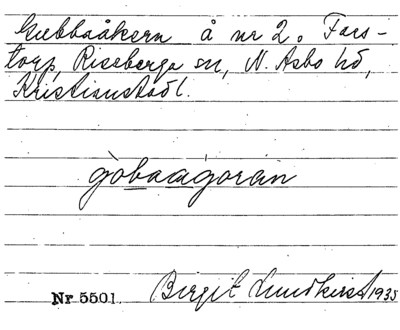 Gubbaåkern å nr 2. Fars-
torp, Riseberga sn, N. Åsbo hd,
Kristianstad l.
gòbaagóran
Nr 5501. Birgit Lundkvist 1935